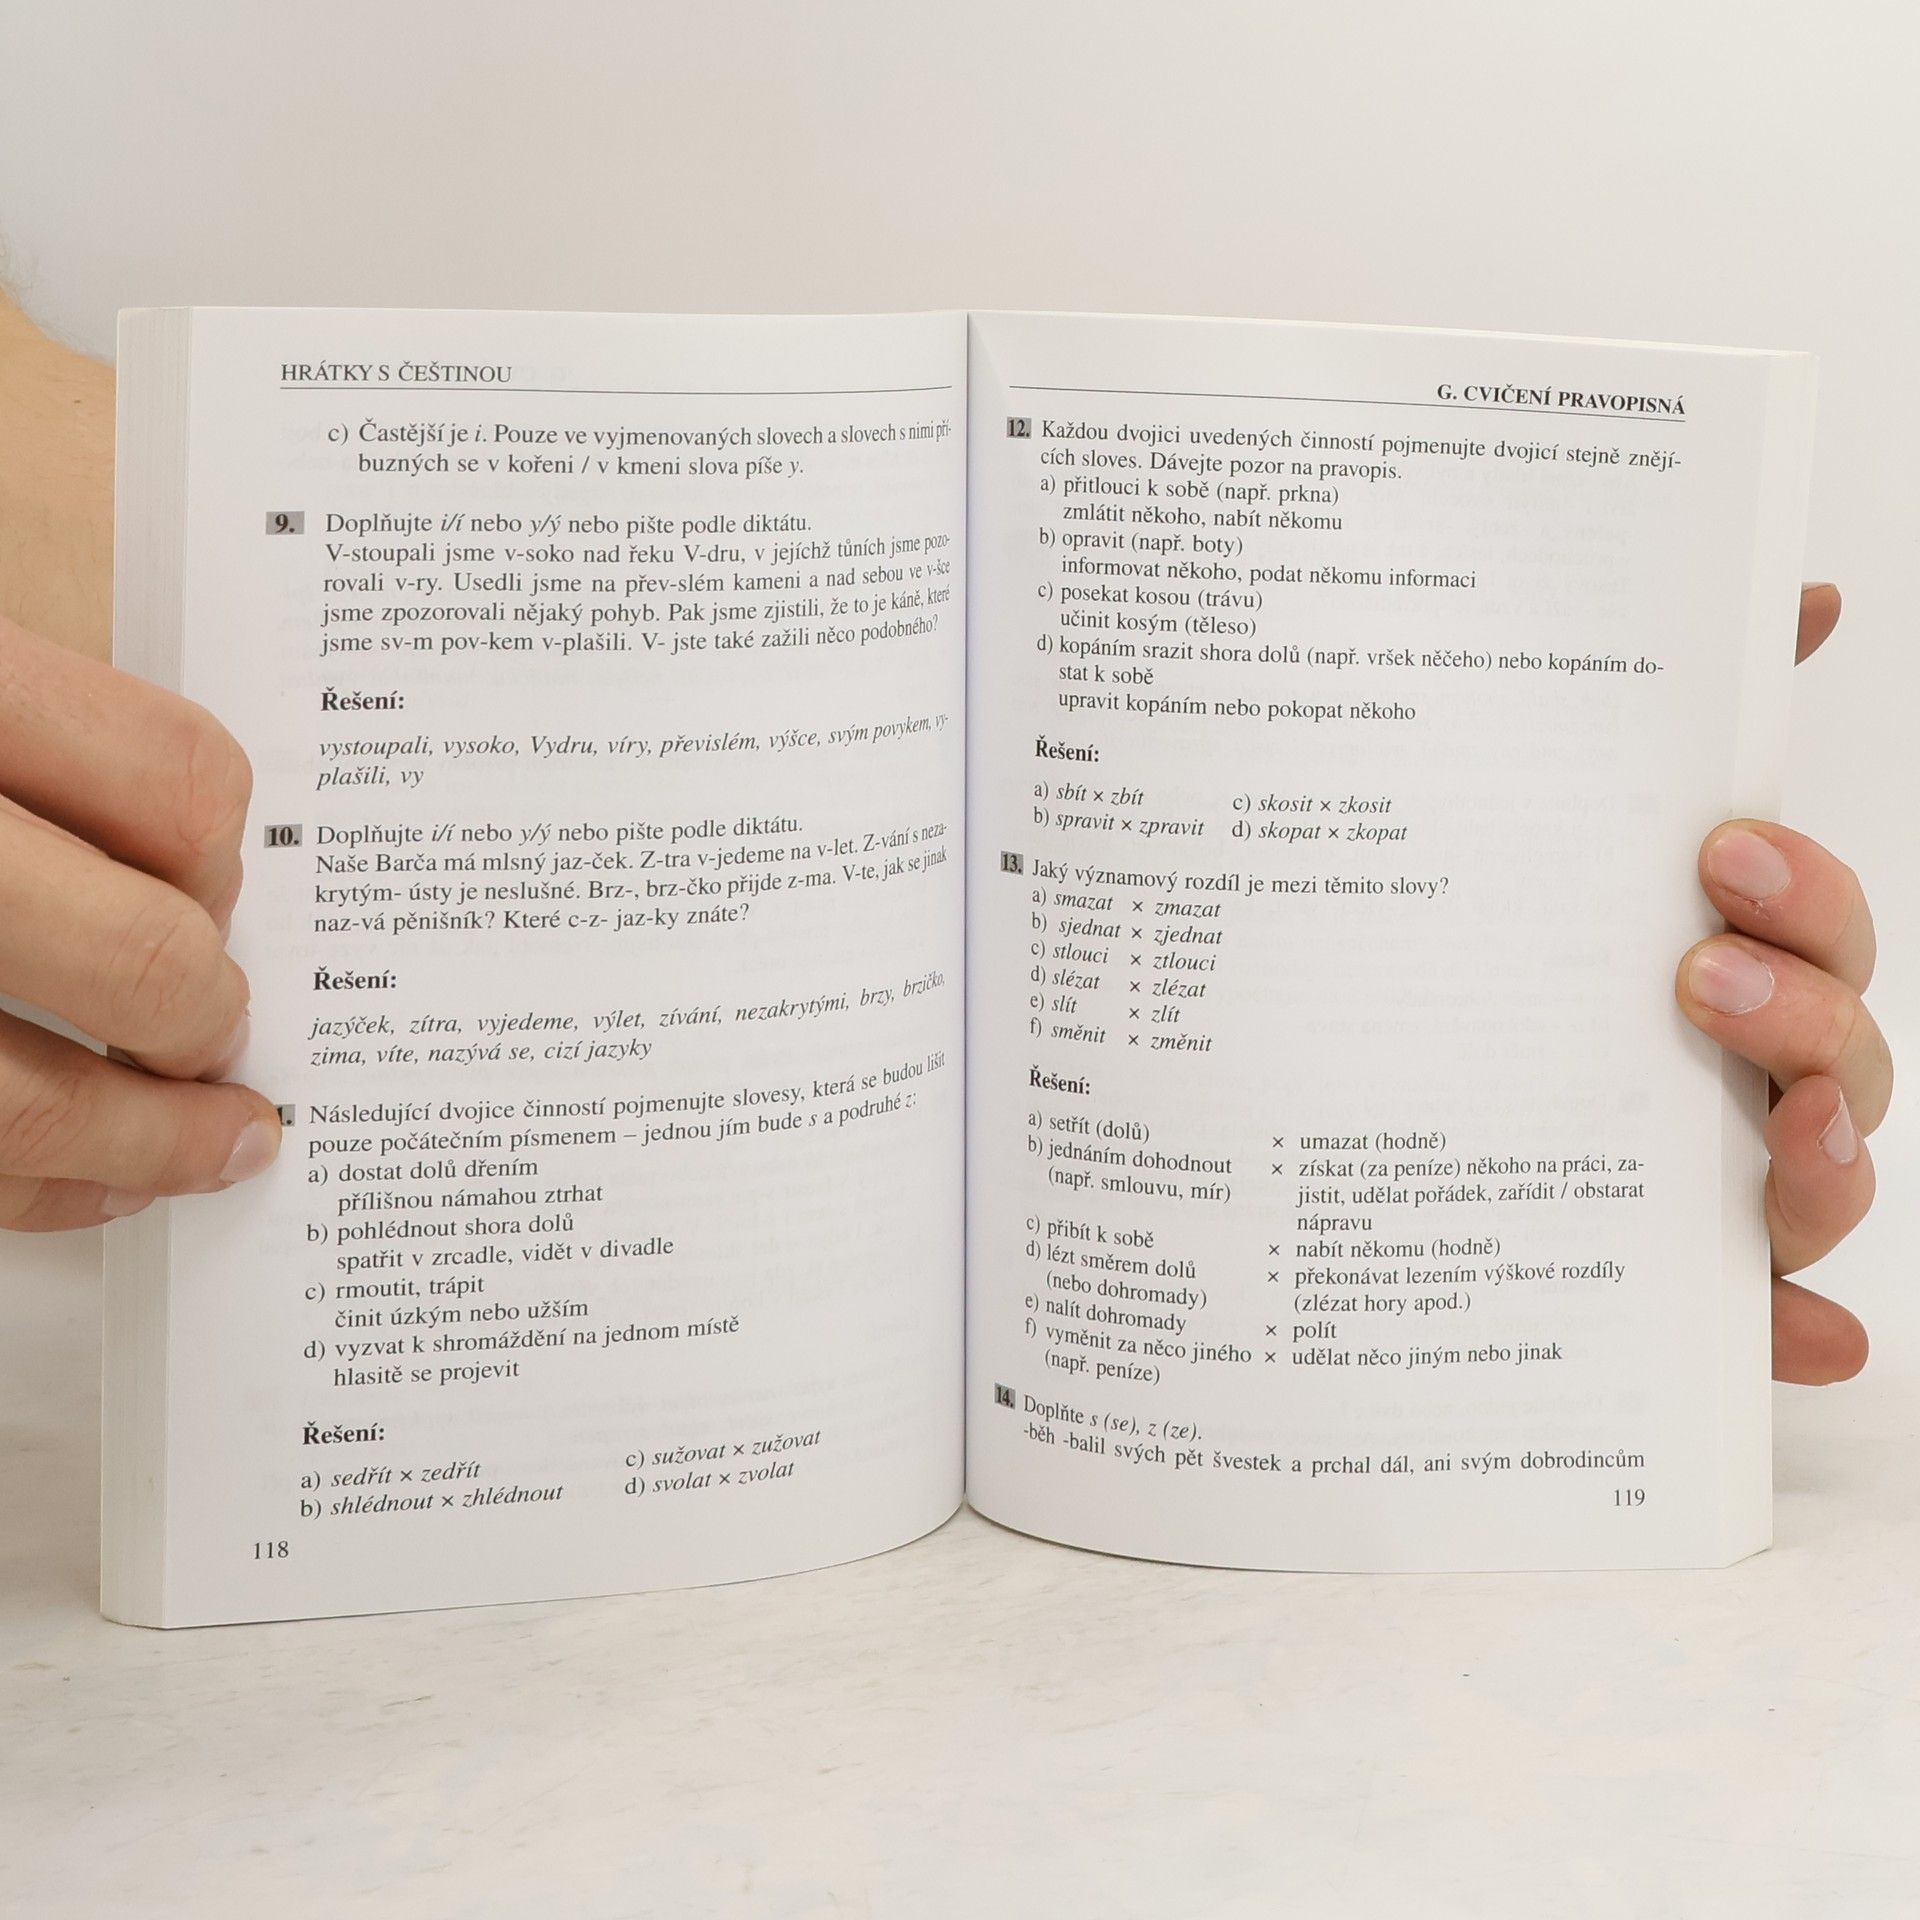 HRÁTKY S ČEŠTINOU
c) Častější je i. Pouze ve vyjmenovaných slovech a slovech s nimi pří-
buzných se v kořeni / v kmeni slova píše y.
9. Doplňujte i/í nebo y/ý nebo pište podle diktátu.
V-stoupali jsme v-soko nad řeku V-dru, v jejíchž tůních jsme pozo-
rovali v-ry. Usedli jsme na přev-slém kameni a nad sebou ve v-šce
jsme zpozorovali nějaký pohyb. Pak jsme zjistili, že to je káně, které
jsme sv-m pov-kem v-plašili. V- jste také zažili něco podobného?
Řešení:
vystoupali, vysoko, Vydru, víry, převislém, výšce, svým povykem, vy-
plašili, vy
10. Doplňujte i/í nebo y/ý nebo pište podle diktátu.
Naše Barča má mlsný jaz-ček. Z-tra v-jedeme na v-let. Z-vání s neza-
krytým- ústy je neslušné. Brz-, brz-čko přijde z-ma. V-te, jak se jinak
naz-vá pěnišník? Které c-z- jaz-ky znáte?
Řešení:
jazýček, zítra, vyjedeme, výlet, zívání, nezakrytými, brzy, brzičko,
zima, víte, nazývá se, cizí jazyky
1. Následující dvojice činností pojmenujte slovesy, která se budou lišit
pouze počátečním písmenem – jednou jím bude s a podruhé z:
a) dostat dolů dřením
přílišnou námahou ztrhat
b) pohlédnout shora dolů
spatřit v zrcadle, vidět v divadle
c) rmoutit, trápit
činit úzkým nebo užším
d) vyzvat k shromáždění na jednom místě
hlasitě se projevit
Řešení:
a) sedřít × zedřít c) sužovat × zužovat
b) shlédnout × zhlédnout d) svolat × zvolat
118
G. CVIČENÍ PRAVOPISNÁ
12. Každou dvojici uvedených činností pojmenujte dvojicí stejně znějí-
cích sloves. Dávejte pozor na pravopis.
a) přitlouci k sobě (např. prkna)
zmlátit někoho, nabít někomu
b) opravit (např. boty)
informovat někoho, podat někomu informaci
c) posekat kosou (trávu)
učinit kosým (těleso)
d) kopáním srazit shora dolů (např. vršek něčeho) nebo kopáním do-
stat k sobě
upravit kopáním nebo pokopat někoho
Řešení:
a) sbít × zbít c) skosit × zkosit
b) spravit × zpravit d) skopat × zkopat
13. Jaký významový rozdíl je mezi těmito slovy?
a) smazat × zmazat
b) sjednat × zjednat
c) stlouci × ztlouci
d) slézat × zlézat
e) slít × zlít
f) směnit × změnit
Řešení:
a) setřít (dolů) × umazat (hodně)
b) jednáním dohodnout × získat (za peníze) někoho na práci, za-
(např. smlouvu, mír) jistit, udělat pořádek, zařídit / obstarat
nápravu
c) přibít k sobě × nabít někomu (hodně)
d) lézt směrem dolů × překonávat lezením výškové rozdíly
(nebo dohromady) (zlézat hory apod.)
e) nalít dohromady × polít
f) vyměnit za něco jiného × udělat něco jiným nebo jinak
(např. peníze)
14. Doplňte s (se), z (ze).
-běh -balil svých pět švestek a prchal dál, ani svým dobrodincům
119